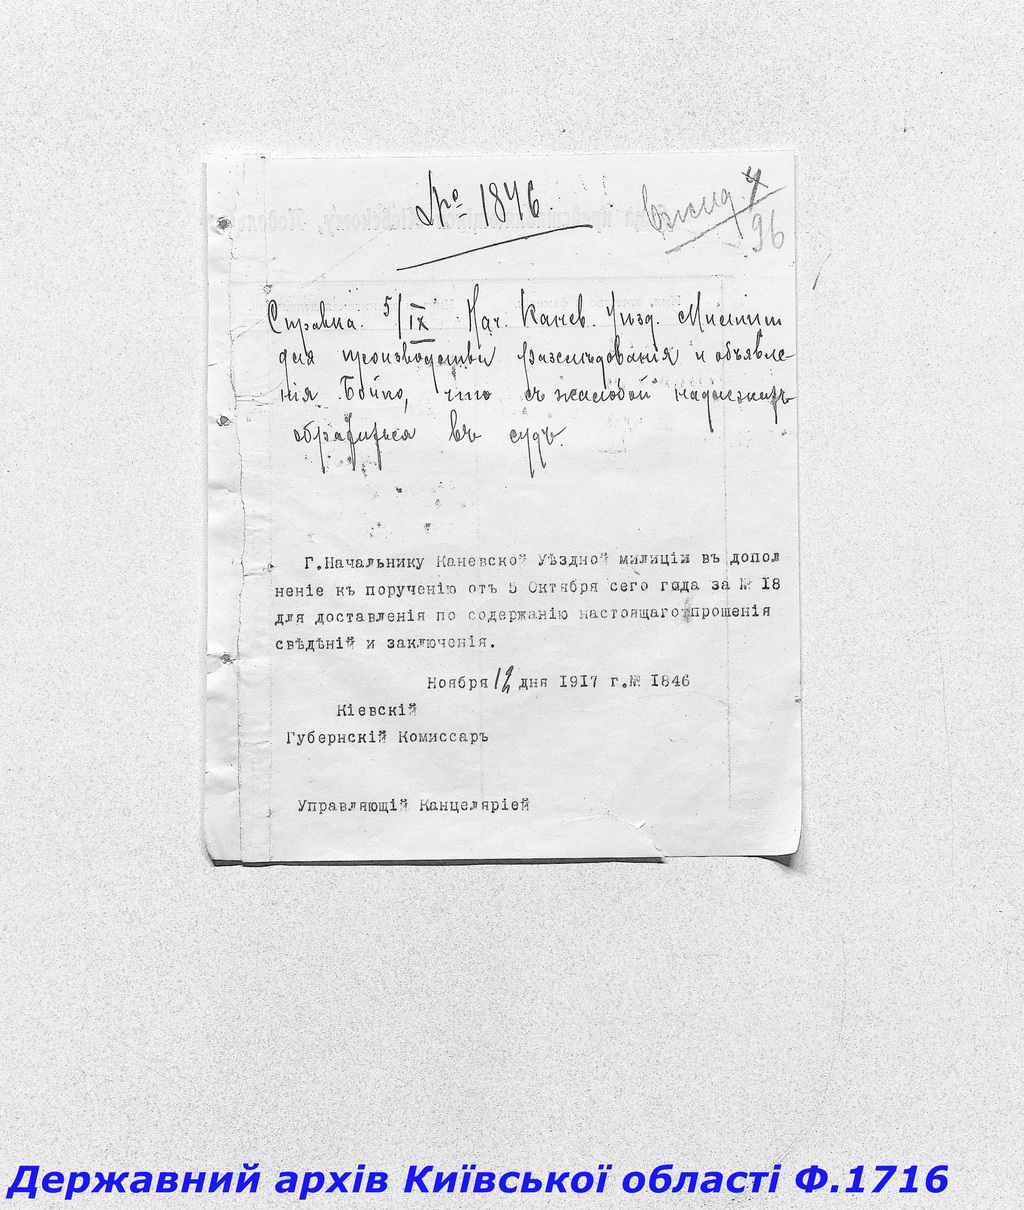 № 1846.
96
Справка. 5/IX Нач. Канев. Уѣзд. Милиціи
для производства разслѣдованія и объявле-
нія Бойко, что съ жалобой надлежитъ
обратиться въ судъ.
Г.Начальнику Каневской Уѣздной милиціи въ допол
неніе къ порученію отъ 5 Октября сего года за № 18
для доставленія по содержанію настоящаго прошенія
свѣдѣній и заключенія.
Ноября 12 дня 1917 г.№ 1846
Кіевскій
Губернскій Комиссаръ
Управляющій Канцеляріей
Державний архів Київської області Ф.1716